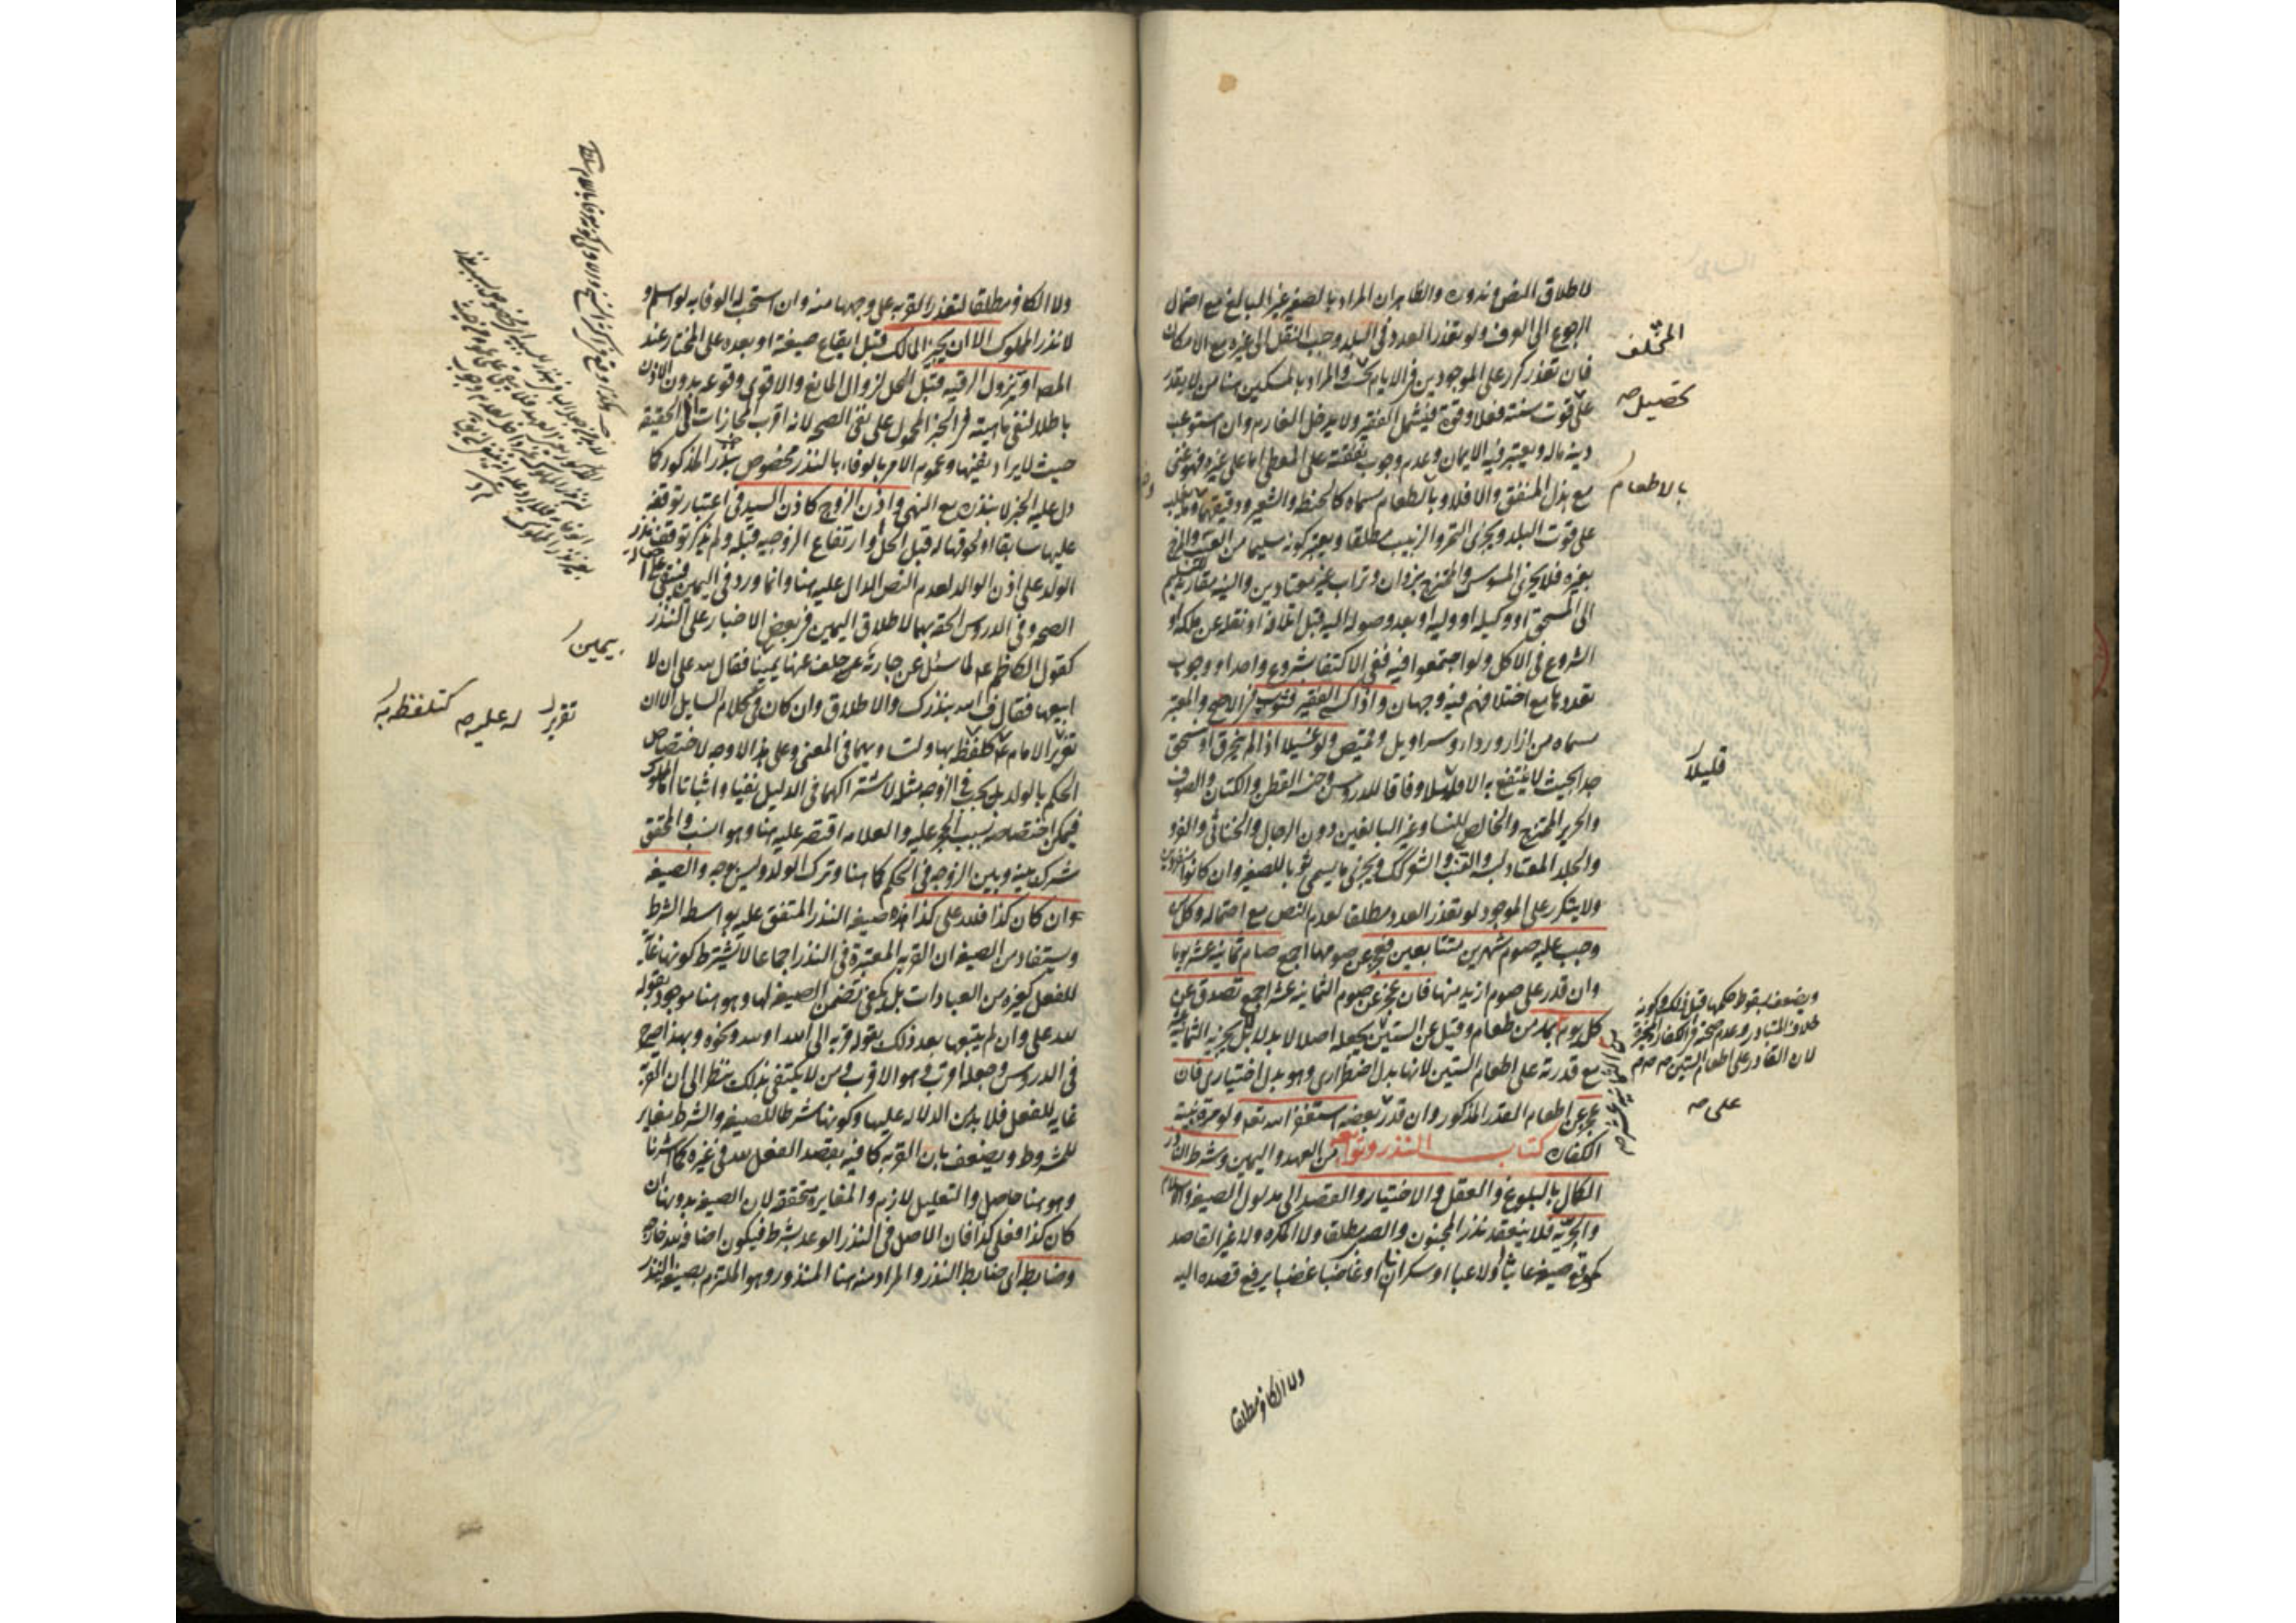 لاطلاق النص وندوره والظاهر ان المراد بالصغير غير البالغ مع احتمال
الرجوع الى العرف ولو تعذر العدد في البلد وجب النقل الى غيره مع الامكان
فان تعذر كرر على الموجودين في الايام بحسب والمراد بالمسكين هنا من لا يقدر
على قوت سنته فعلا وقوة فيشمل الفقير ولا يدخل الغارم وان استوعب
دينه ماله ويعتبر فيه الايمان وعدم وجوب نفقته على المعطي اما على غيره فهو غني
مع بذل المنفق والا فلا وبالطعام مسماه كالحنطة والشعير ودقيقهما
على قوت البلد ويجزي التمر والزبيب مطلقا ويعتبر كونه سليما من العيب والمزج
بغيره فلا يجزي المسوس والممتزج بزوان وتراب غير معتادين والنية مقارنة للتسليم
الى المستحق او وكيله او وليه او بعد وصوله اليه قبل اتلافه او نقله عن ملكه او
الشروع في الاكل ولو اجتمعوا فيه ففي الاكتفا بشروع واحد او وجوب
تعددها مع اختلافهم فيه وجهان واذا كسي الفقير فثوب في الاصح والمعتبر
مسماه من ازار ورداء وسراويل وقميص ولو غسيلا اذا لم ينخرق او ينسحق
جدا بحيث لا ينتفع به الا قليلا وفاقا للدروس وجنسه القطن والكتان والصوف
والحرير الممتزج والخالص للنسا وغير البالغين دون الرجال والخناثى والفرو
والجلد المعتاد لبسه والقنب والشعر كذلك ويجزي ما يسمى ثوبا للصغير وان كانوا
ولا يتكرر على الموجود لو تعذر العدد مطلقا لعدم النص مع احتماله وكل من
وجب عليه صوم شهرين متتابعين فعجز عن صومهما اجمع صام ثمانية عشر يوما
وان قدر على صوم ازيد منها فان عجز عن صوم الثمانية عشر اجمع تصدق عن
كل يوم بمد من طعام وقيل عن الستين بجعله اصلا لا بدلا بل يجزيه الثمانية
مع قدرته على اطعام الستين لانها بدل اضطراري وهو بدل اختياري فان
عجز عن اطعام القدر المذكور وان قدر بعضه استغفر الله تعالى ولو مرة بنية
الكفارة كتاب النذر وتوابعه من العهد واليمين وشرط الناذر
الكمال بالبلوغ والعقل والاختيار والقصد الى مدلول الصيغة والاسلام
والحرية فلا ينعقد نذر المجنون والصبي مطلقا ولا المكره ولا غير القاصد
كموقع صيغة عابثا او لاعبا او سكران او غاضبا غضبا يرفع قصده اليه
ولا الكافر مطلقا
تحصيل صح
بالاطعام
قليلا
ويضعف بسقوط حكمها قبل ذلك وكونه
خلاف المتبادر وعدم صحته في الكفارة المخيرة
لان القادر على اطعام الستين
على صح
ولا الكافر مطلقا لتعذر القربة على وجهها منه وان استحب له الوفا به لو اسلم و
لا نذر المملوك الا ان يجيز المالك قبل ايقاع صيغة او بعده على المختار عند
المصـ او تزول الرقية قبل الحل لزوال المانع والاقوى وقوعه بدون الاذن
باطلا لنفي ماهيته في الخبر المحمول على نفي الصحة لانه اقرب المجازات الى الحقيقة
حيث لا يراد نفيها وعموم الامر بالوفاء بالنذر مخصوص بنذر المذكور كما
دل عليه الخبر لا بنذره مع النهي واذن الزوج كاذن السيد في اعتبار توقفه
عليها سابقا او لحوقها له قبل الحل او ارتفاع الزوجية قبله ولم يذكر توقف نذر
الولد على اذن الوالد لعدم النص الدال عليه هنا وانما ورد في اليمين فيبقى على اصالة
الصحة وفي الدروس الحقه بهما لاطلاق اليمين في بعض الاخبار على النذر
كقول الكاظم ع لما سئل عن جارية حلف عنها يمينا فقال لله علي ان لا
ابيعها فقال ف لله بنذرك والاطلاق وان كان في كلام السايل الا ان
تقرير الامام ع كتلفظه بها ولتساويهما في المعنى وعلى هذا لا وجه لاختصاص
الحكم بالولد بل يجب في الزوجة مثله لاشتراكهما في الدليل نفيا واثباتا اما المملوك
فيمكن اختصاصه بسبب الحجر عليه والعلامة اقتصر عليه هنا وهو انسب والمحقق
شرك بينه وبين الزوجة في الحكم كما هنا وترك الولد وليس بوجه والصيغة
ان كان كذا فلله علي كذا هذه صيغة النذر المتفق عليه بواسطة الشرط
ويستفاد من الصيغة ان القربة المعتبرة في النذر اجماعا لا يشترط كونها غاية
للفعل كغيره من العبادات بل يكفي تضمن الصيغة لها وهو هنا موجود بقوله
لله علي وان لم يتبعها بعد ذلك بقوله قربة الى الله او لله ونحوه وبهذا صرح
في الدروس وجعله اقرب وهو الاقرب ومن لا يكتفي بذلك ينظر الى ان القربة
غاية للفعل فلا بد من الدلالة عليها وكونها شرطا للصيغة والشرط مغاير
للمشروط ويضعف بان القربة كافية بقصد الفعل لله في غيره كما اشرنا
وهو هنا حاصل والتعليل لازم والمغايرة متحققة لان الصيغة بدونها ان
كان كذا فعلي كذا فان الاصل في النذر الوعد بشرط فيكون اضافة لله خارجة
وضابطه اي ضابط النذر والمراد منه هنا المنذور وهو الملتزم بصيغة النذر
بيمين
تقرير
له عليه صح
كتلفظه به